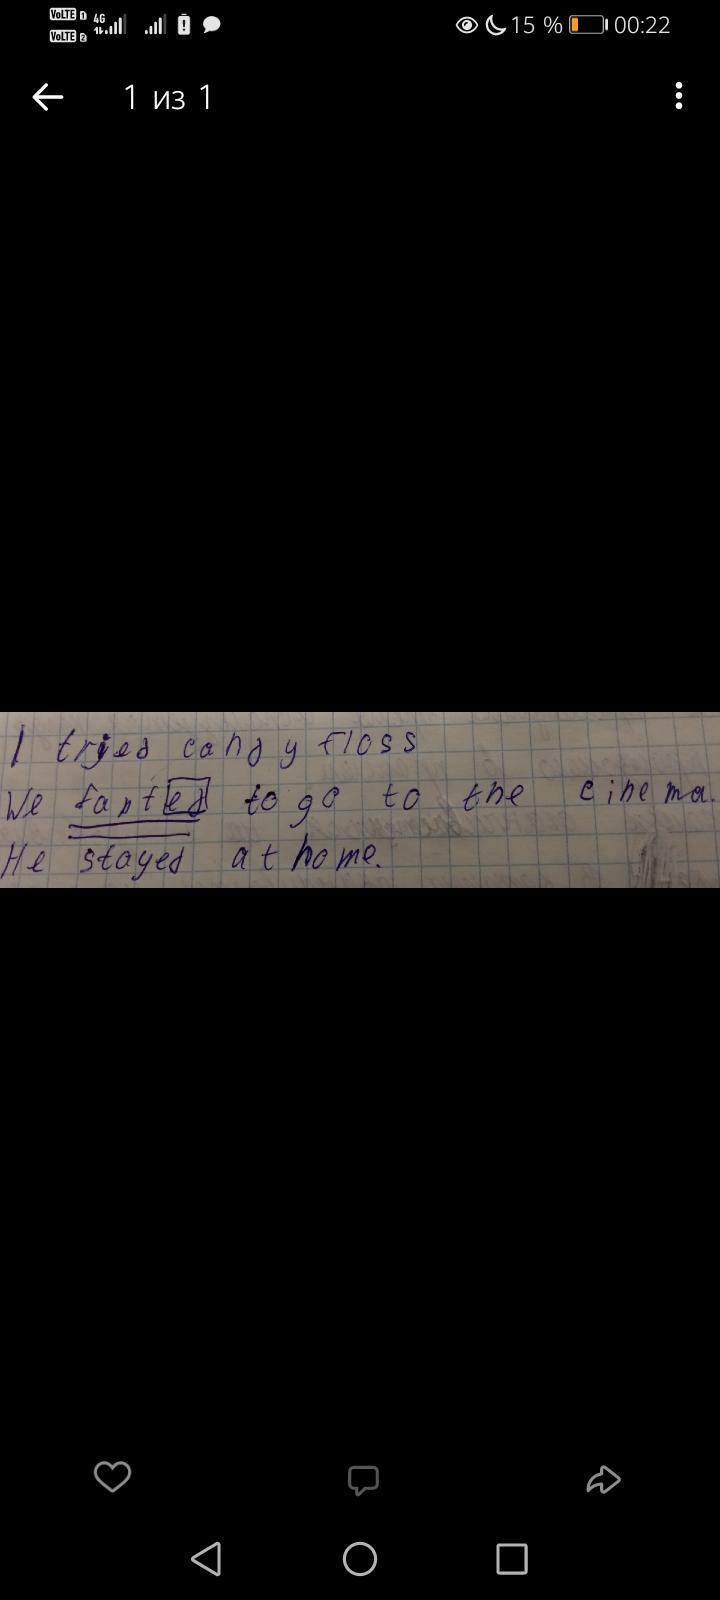 VoLTE 1
VoLTE 2
4G
15 %
00:22
1 из 1
I tried candy floss
We fanted to go to the cinema.
He stayed at home.